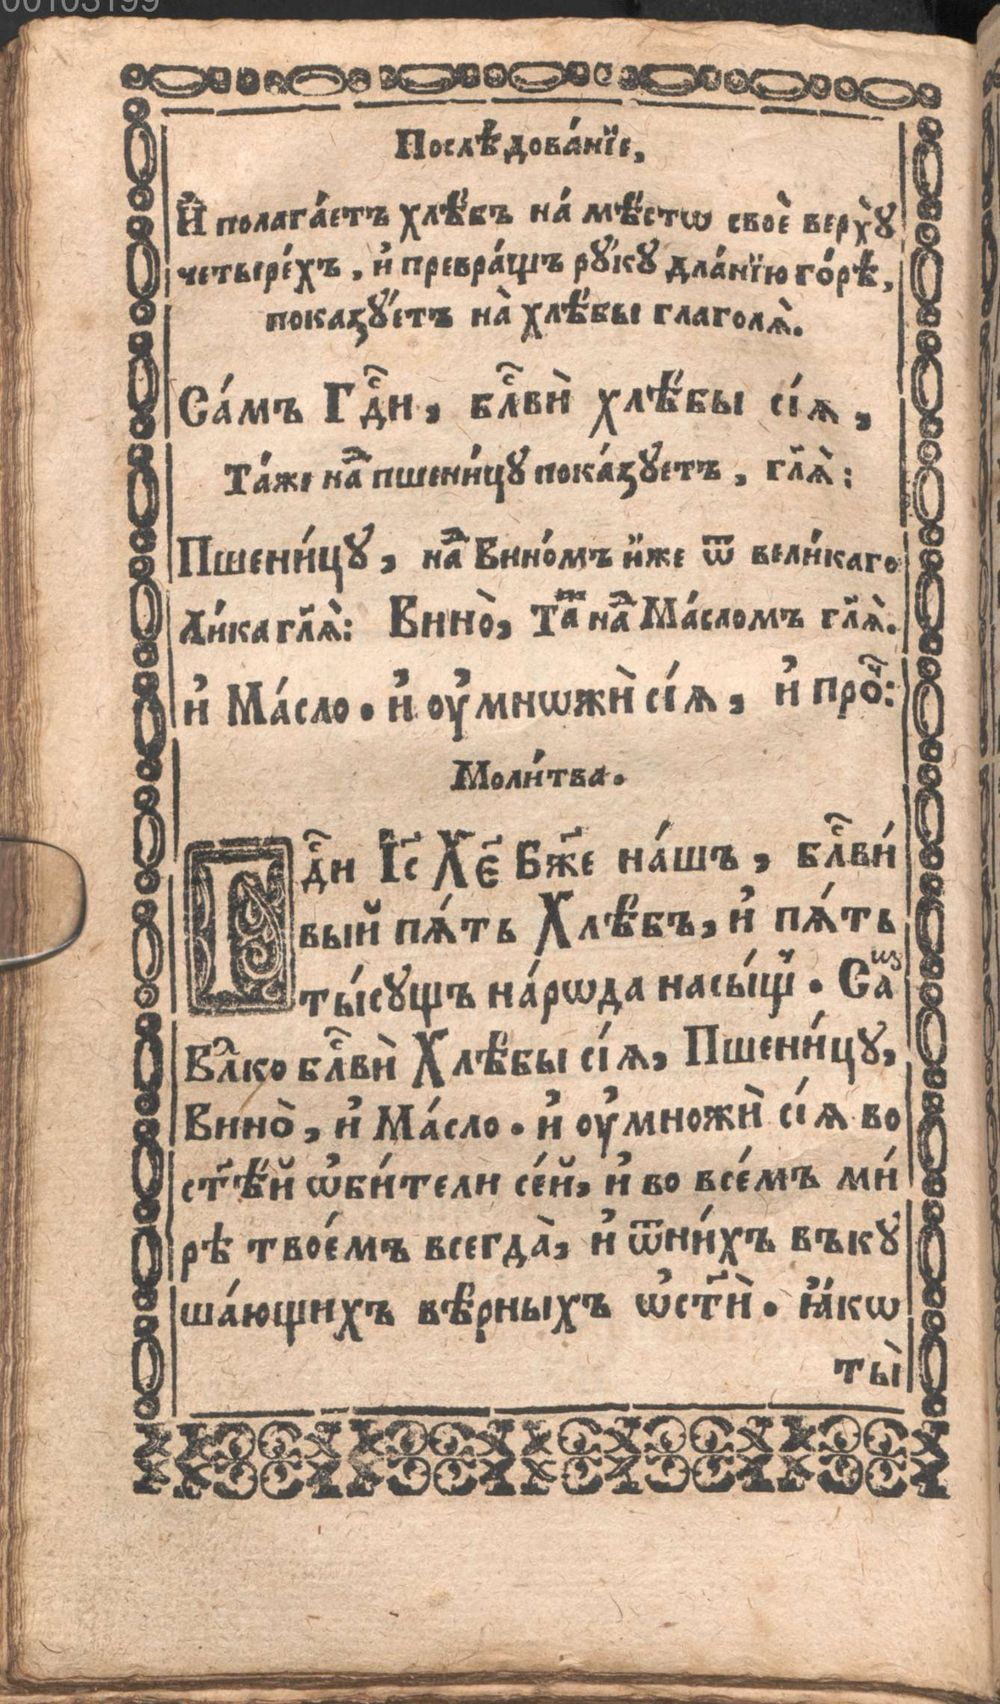 00103199
Послѣдова́нїе,
И҆ полага́етъ хлѣ́бъ на́ мѣ́стѡ своѐ верхꙋ̀
четыере́хъ, и҆ превра́щъ рꙋ́кꙋ дла́нїю го́рѣ,
показꙋ́етъ на̀ хлѣ́бы глаголѧ̀.
Са́мъ Гдⷭ҇и, блⷭ҇вѝ хлѣ́бы сі́ѧ,
Та́же наⷣ пшени́цꙋ пока́зꙋетъ, гл҃ѧ̀:
Пшени́цꙋ, наⷣ Вино́мъ и҆́же ѿ вели́каго
Ли́ка гл҃ѧ̀: Вино̀, Таⷤ наⷣ Ма́сломъ гл҃ѧ̀.
и҆ Ма́сло. и҆ ᲂу҆мнѡжѝ сі́ѧ, и҆ проⷱ҇:
Моли́тва.
Гдⷭ҇и І҃с Хе҃ Бж҃е на́шъ, блⷭ҇ви́
вый пѧ́ть Хлѣ́бъ, и҆ пѧ́ть
ты́сꙋщъ на́рѡда насы́щ̾. Саⷨ
Влⷣко блⷭ҇вѝ Хлѣ́бы сі́ѧ, Пшени́цꙋ,
Вино̀, и҆ Ма́сло. и҆ ᲂу҆множѝ сі́ѧ во
ст҃ѣ́й ѡ҆би́тели се́й, и҆ во всѐмъ ми́
рѣ твое́мъ всегда̀, и҆ ѿни́хъ въкꙋ
ша́ющихъ вѣ́рныхъ ѡ҆ст҃ѝ. ꙗ҆́кѡ
ты̀